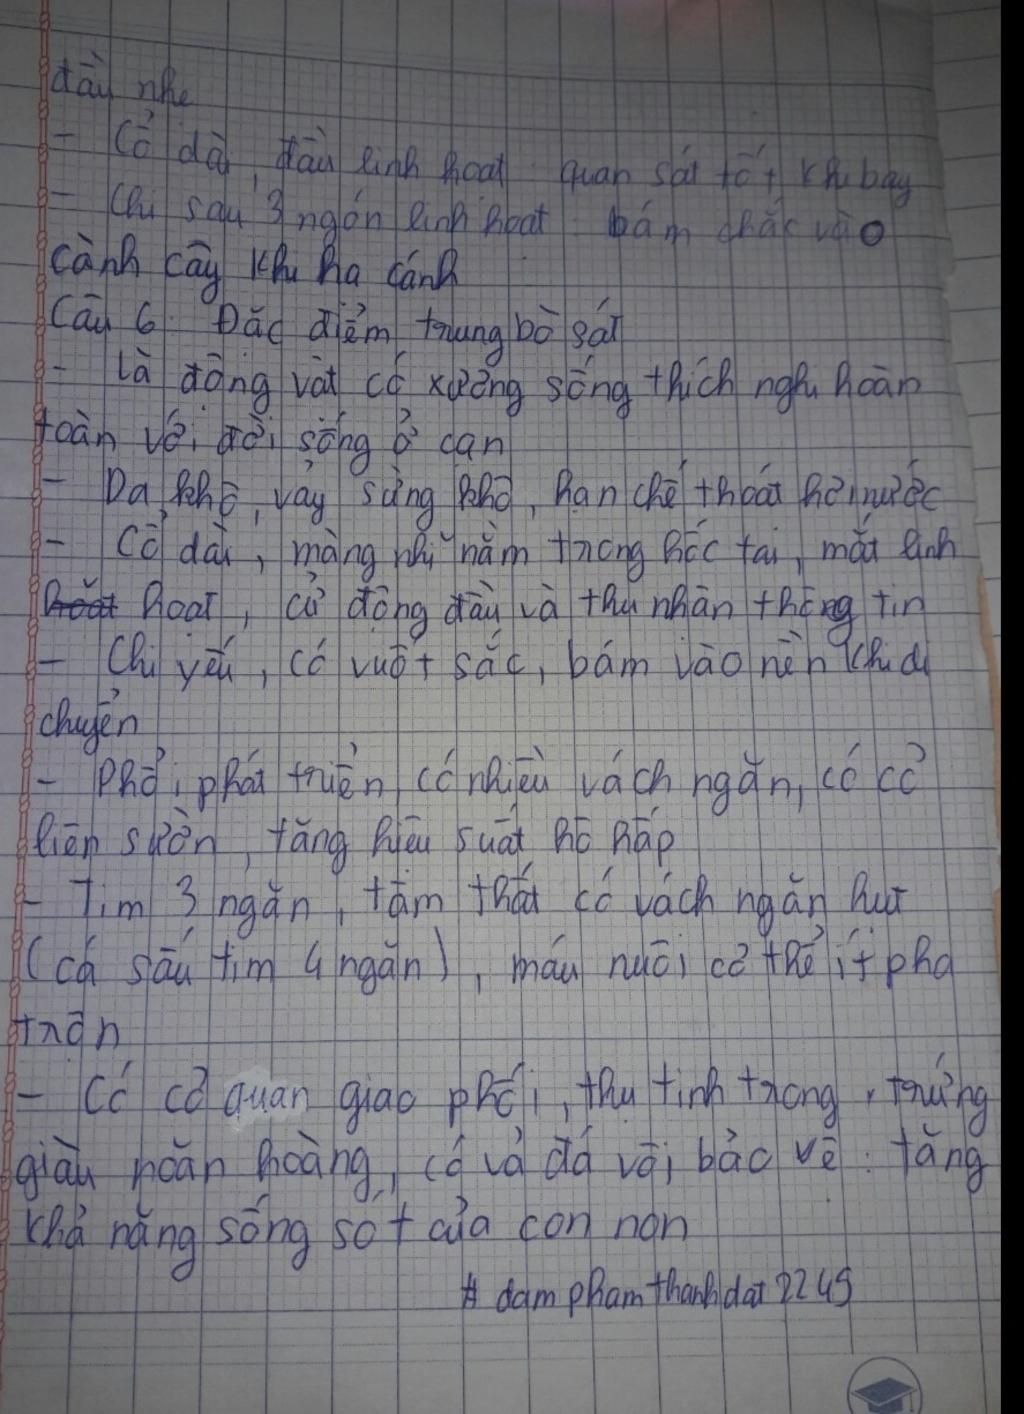 đầu nhẹ
- Cổ dài, đầu linh hoạt quan sát tốt khi bay
- Chi sau 3 ngón linh hoạt: bám chắc vào
cành cây khi hạ cánh
Câu 6: Đặc điểm trung bò sát
- Là động vật có xương sống thích nghi hoàn
toàn với đời sống ở cạn
- Da khô, vảy sừng khô, hạn chế thoát hơi nước
- Cổ dài, màng nhĩ nằm trong hốc tai, mắt linh
hoạt, cử động đầu và thu nhận thông tin
- Chi yếu, có vuốt sắc, bám vào nền khi di
chuyển
- Phổi phát triển có nhiều vách ngăn, có cơ
liên sườn, tăng hiệu suất hô hấp
- Tim 3 ngăn, tâm thất có vách ngăn hụt
(cá sấu tim 4 ngăn), máu nuôi cơ thể ít pha
trộn
- Có cơ quan giao phối, thụ tinh trong, trứng
giàu noãn hoàng, có vỏ đá vôi bảo vệ: tăng
khả năng sống sót của con non
# damphamthanhdat2245